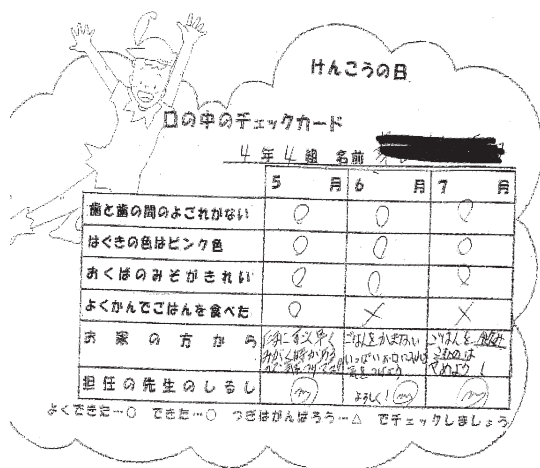 けんこうの日
口の中のチェックカード
4年4組 名前
5月 6月 7月
歯と歯の間のよごれがない ○ ○ ○
はぐきの色はピンク色 ○ ○ ○
おくばのみぞがきれい ○ ○ ○
よくかんでごはんを食べた ○ × ×
お家の方から
ごはんをかまない
いっぱいお口に
ごはんを飲み
こむのは
やめよう!
担任の先生のしるし
よろしく!
よくできた…○ できた…○ つぎはがんばろう…△ でチェックしましょう